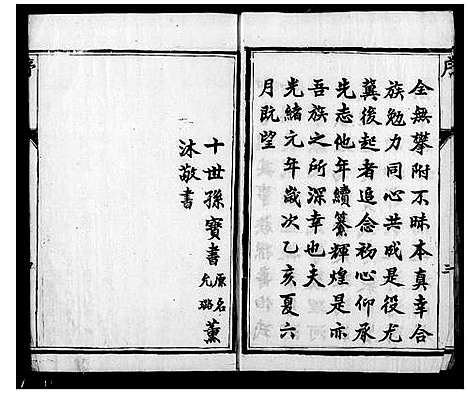 序
全無攀附不昧本真幸合
族勉力同心共成是役尤
冀後起者追念初心仰承
先志他年續纂輝煌是亦
吾族之所深幸也夫
光緒元年歲次乙亥夏六
月既望
三
十世孫寶書原名允璐薰
沐敬書
序